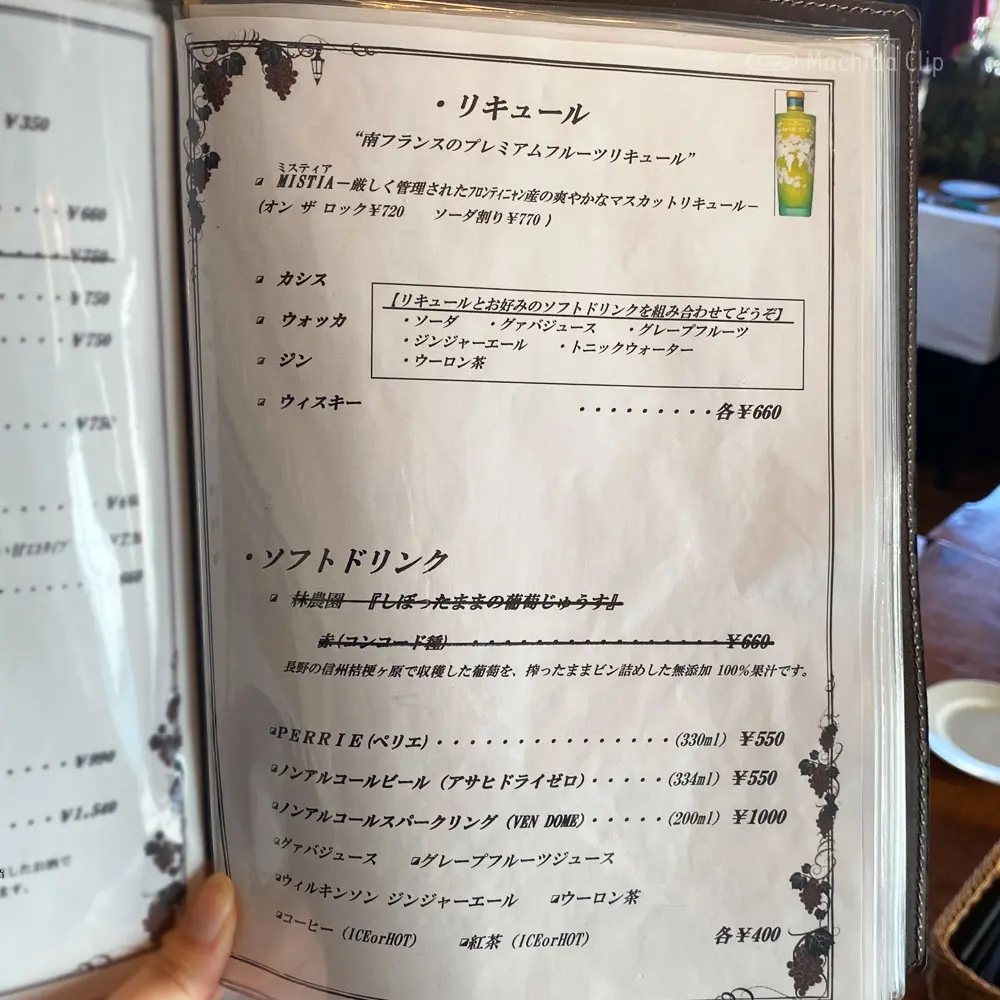 Machida Clip
¥350
¥660
¥750
¥750
¥750
¥990
¥1,540
・リキュール
“南フランスのプレミアムフルーツリキュール”
ミスティア
MISTIA－厳しく管理されたフロンティニャン産の爽やかなマスカットリキュール－
(オン ザ ロック¥720 ソーダ割り¥770 )
カシス
ウォッカ
ジン
ウィスキー
【リキュールとお好みのソフトドリンクを組み合わせてどうぞ】
・ソーダ ・グァバジュース ・グレープフルーツ
・ジンジャーエール ・トニックウォーター
・ウーロン茶
・・・・・・・・・各¥660
・ソフトドリンク
林農園 『しぼったままの葡萄じゅうす』
赤(コンコード種)・・・・・・・・・・・・・・・・¥660
長野の信州桔梗ヶ原で収穫した葡萄を、搾ったままビン詰めした無添加 100%果汁です。
PERRIE(ペリエ)・・・・・・・・・・・・・・・(330ml) ¥550
ノンアルコールビール（アサヒドライゼロ）・・・・・(334ml) ¥550
ノンアルコールスパークリング（VEN DOME）・・・・・(200ml) ¥1000
グァバジュース グレープフルーツジュース
ウィルキンソン ジンジャーエール ウーロン茶
コーヒー（ICEorHOT） 紅茶（ICEorHOT） 各¥400